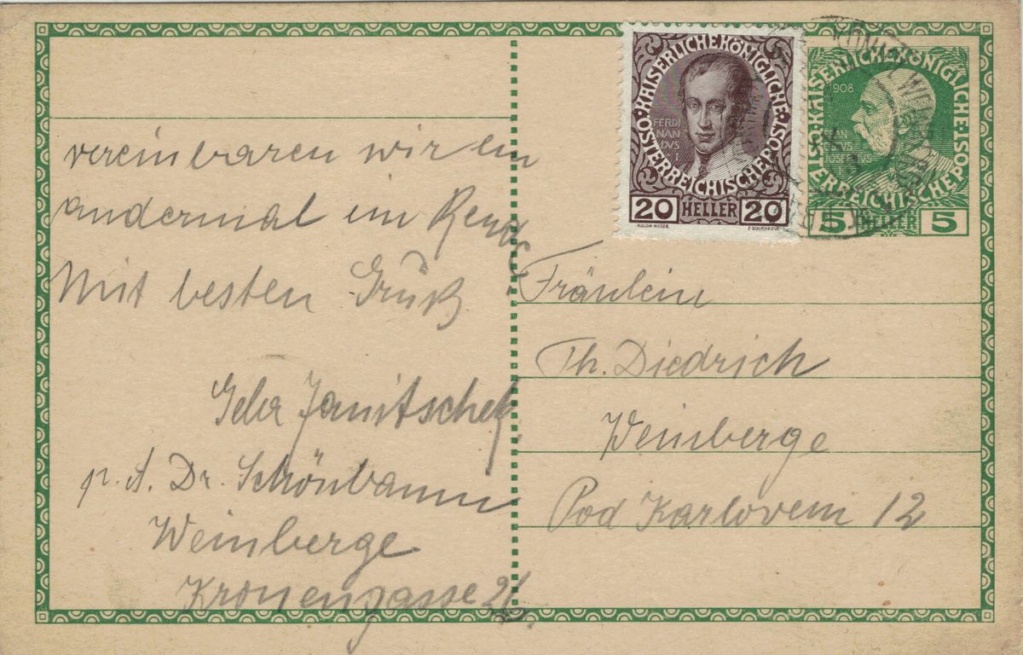 vereinbaren wir ein
andermal ein Rend.
Mit besten Gruß
Janitschek
p. A. Dr. Schönbaum
Weinberge
Kronengasse
KAISERLICHE KÖNIGLICHE ÖSTERREICHISCHE POST
FERDI
NAN
DVS
I
20 HELLER 20
KAISERLICHE KÖNIGLICHE ÖSTERREICHISCHE POST
1908
FRAN
CISCVS
JOSEPHVS
I
5 HELLER 5
Fräulein
Th. Diedrich
Weinberge
Pod Karlovem 12